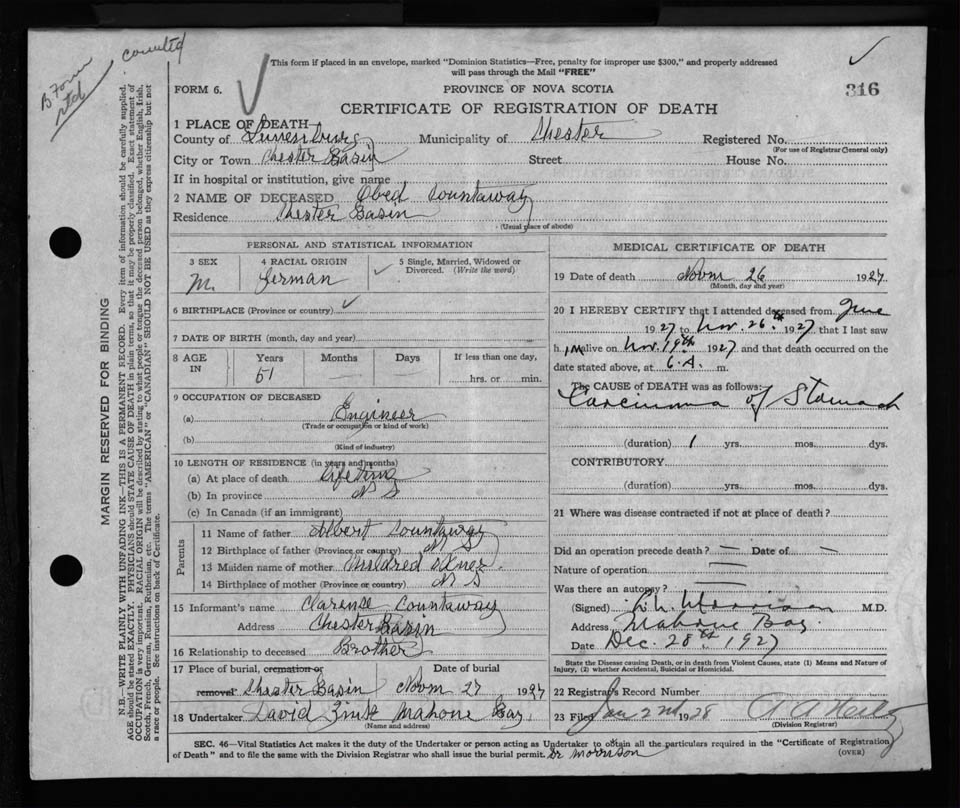 B Form rtd
counted
This form if placed in an envelope, marked "Dominion Statistics—Free, penalty for improper use $300," and properly addressed
will pass through the Mail "FREE"
FORM 6.
PROVINCE OF NOVA SCOTIA
316
CERTIFICATE OF REGISTRATION OF DEATH
1 PLACE OF DEATH
County of Lunenburg Municipality of Chester Registered No.
(For use of Registrar General only)
City or Town Chester Basin Street House No.
If in hospital or institution, give name
2 NAME OF DECEASED Obed Countaway
Residence Chester Basin
(Usual place of abode)
PERSONAL AND STATISTICAL INFORMATION
3 SEX 4 RACIAL ORIGIN 5 Single, Married, Widowed or
Divorced. (Write the word)
M. German
6 BIRTHPLACE (Province or country)
7 DATE OF BIRTH (month, day and year)
8 AGE IN Years Months Days If less than one day,
51 hrs. or min.
9 OCCUPATION OF DECEASED
(a) Engineer
(Trade or occupation or kind of work)
(b)
(Kind of industry)
10 LENGTH OF RESIDENCE (in years and months)
(a) At place of death Lifetime
(b) In province N S
(c) In Canada (if an immigrant)
Parents
11 Name of father Albert Countaway
12 Birthplace of father (Province or country) N S
13 Maiden name of mother Mildred
14 Birthplace of mother (Province or country) N S
15 Informant's name Clarence Countaway
Address Chester Basin
16 Relationship to deceased Brother
17 Place of burial, cremation or Date of burial
removal Chester Basin Novm 27 1927
18 Undertaker David Zink Mahone Bay
(Name and address)
MEDICAL CERTIFICATE OF DEATH
19 Date of death Novm 26 1927
(Month, day and year)
20 I HEREBY CERTIFY that I attended deceased from June
1927 to Nov. 26th 1927 that I last saw
h im alive on Nov. 19th 1927 and that death occurred on the
date stated above, at 6 A. m.
The CAUSE of DEATH was as follows:
Carcinoma of Stomach
(duration) 1 yrs. mos. dys.
CONTRIBUTORY
(duration) yrs. mos. dys.
21 Where was disease contracted if not at place of death?
Did an operation precede death? — Date of —
Nature of operation —
Was there an autopsy? —
(Signed) Morrison M.D.
Address Mahone Bay
Date Dec. 28th 1927
State the Disease causing Death, or in death from Violent Causes, state (1) Means and Nature of
Injury, (2) whether Accidental, Suicidal or Homicidal.
22 Registrar's Record Number
23 Filed Jan 2nd 1928
(Division Registrar)
SEC. 46—Vital Statistics Act makes it the duty of the Undertaker or person acting as Undertaker to obtain all the particulars required in the "Certificate of Registration
of Death" and to file the same with the Division Registrar who shall issue the burial permit. Dr Morrison (OVER)
MARGIN RESERVED FOR BINDING
N.B.—WRITE PLAINLY WITH UNFADING INK—THIS IS A PERMANENT RECORD. Every item of information should be carefully supplied.
AGE should be stated EXACTLY. PHYSICIANS should STATE CAUSE OF DEATH in plain terms, so that it may be properly classified. Exact statement of
OCCUPATION is very important. RACIAL ORIGIN will be described by stating to what people or tongue the deceased person belonged, whether English, Irish,
Scotch, French, German, Russian, Ruthenian, etc. The terms "AMERICAN" or "CANADIAN" SHOULD NOT BE USED as they express citizenship but not
a race or people. See instructions on back of Certificate.